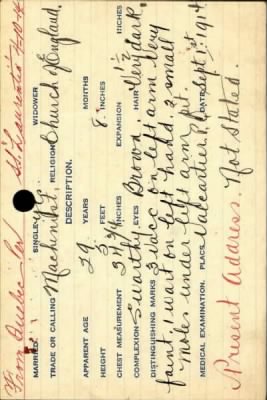 From Quebec Per SS. Laurentic 4.10.14
MARRIED SINGLE Yes WIDOWER
TRADE OR CALLING Machinist. RELIGION Church of England.
DESCRIPTION.
APPARENT AGE 29 YEARS MONTHS
HEIGHT 5 FEET 8 INCHES
CHEST MEASUREMENT INCHES EXPANSION INCHES
COMPLEXION Swarthy EYES Brown. HAIR Very dark
DISTINGUISHING MARKS 3 vacc on left arm Very
faint, wart on left hand, 2 small
moles under left arm pit.
MEDICAL EXAMINATION. PLACE Valcartier, P.Q. DATE Sept 1st 1914
Present Address. Not Stated.